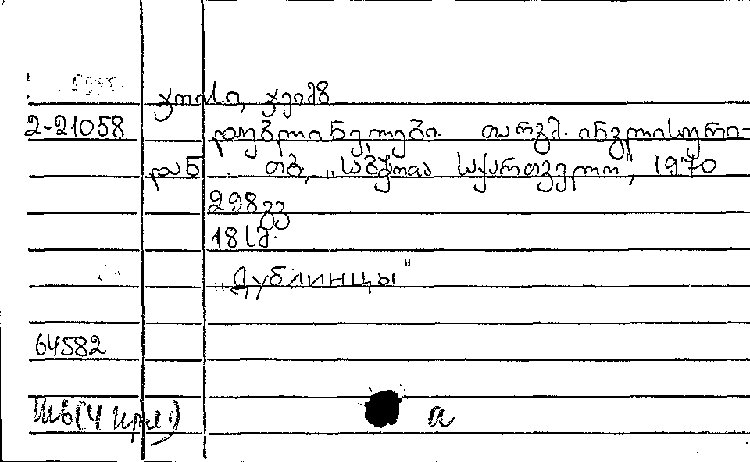 ჯოისი, ჯეიმზ
2-21058 დუბლინელები. თარგმ. ინგლისური-
დან. თბ., „საბჭოთა საქართველო", 1970
298 გვ
18 სმ.
„Дублинцы"
64582
а